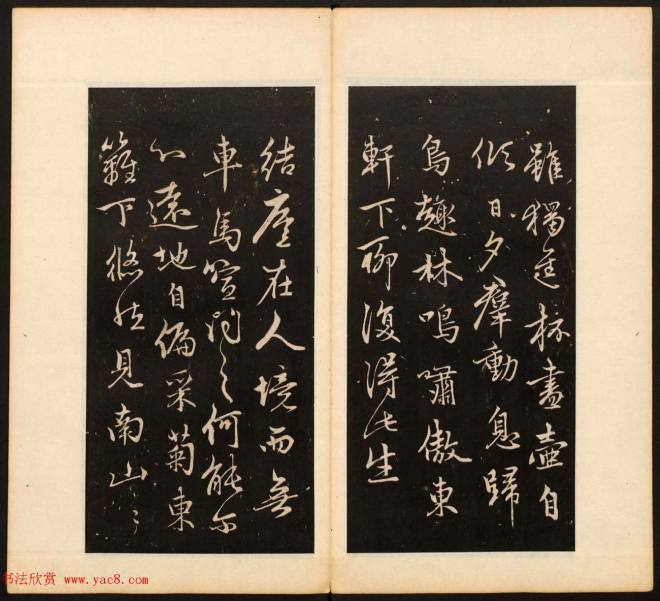 雖獨進杯盡壺自
傾日夕羣動息歸
鳥趨林鳴嘯傲東
軒下聊復得此生
結廬在人境而無
車馬喧問君何能尔
心遠地自偏采菊東
籬下悠然見南山〻
书法欣赏 www.yac8.com